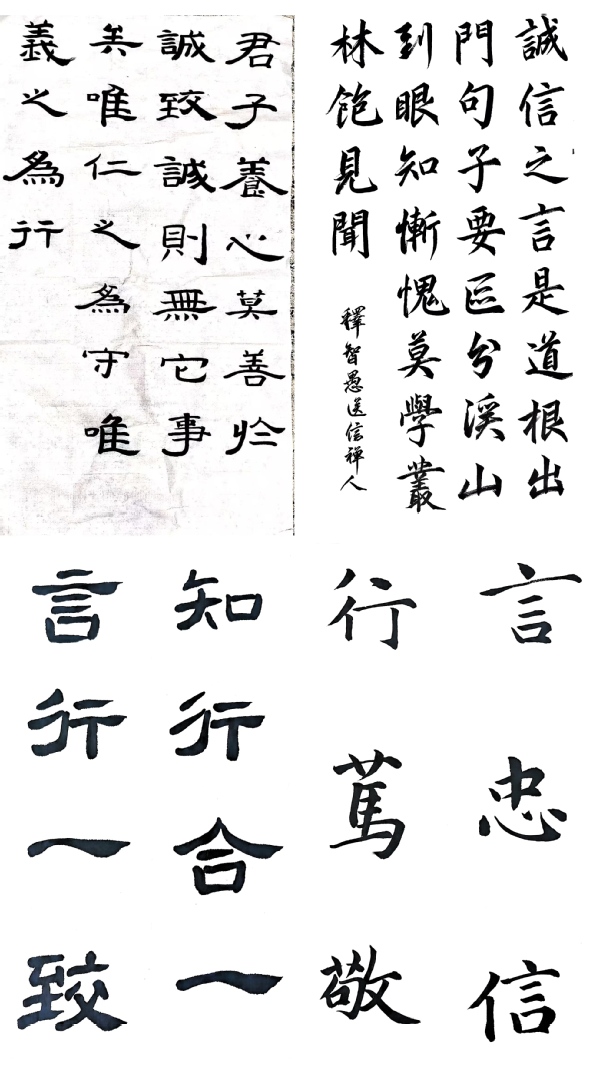 誠信之言是道根出
門句子要區分溪山
到眼知慚愧莫學叢
林飽見聞
釋智愚送信禪人
君子養心莫善於
誠致誠則無它事
矣唯仁之爲守唯
義之爲行
言忠信
行篤敬
知行合一
言行一致